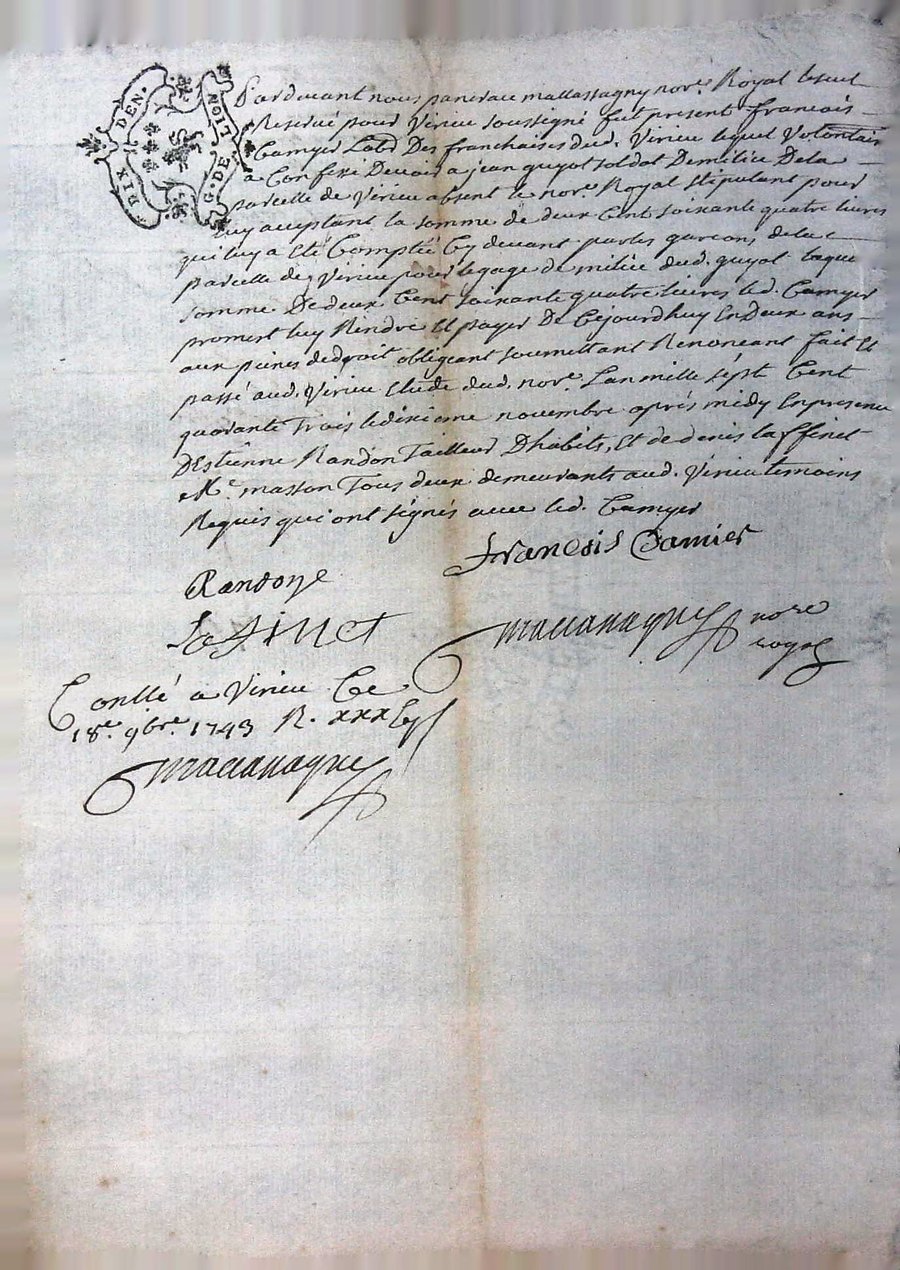 DIX DEN.
G. DE LION
Pardevant nous pancrace mallassagny nore. Royal le seul
Reservé pour Virieu soussigné fut present francois
Camyer Lab. Des franchaises dud. Virieu lequel Volontair
a Confessé Devoir a jean guyot soldat De milice De la
parcelle de Virieu absent le nore. Royal stipulant pour
luy aceptant la somme de deux Cent soixante quatre livres
qui luy a Eté Comptée Cy devant par les garcons de la
parcelle de Virieu pour le gage de milice dud. guyot laque
somme De deux Cent soixante quatre livres led. Camyer
promest luy Rendre Et payer De Cejourdhuy En Deux ans
aux peines de droit obligeant soumettant Renonceant fait Et
passé aud. Virieu Etude dud. nore. Lan mille sept Cent
quarante Trois le dixieme novembre après midy En presence
D'Estienne Randon Tailleur D'habits, Et de denis laffinet
Me. masson Tous deux demeurants aud. Virieu temoins
Requis qui ont signés avec led. Camyer
francois Camier
Randon
Lafinet
nore
royal
Conllé a Virieu Ce
18e. 9bre. 1743 R.